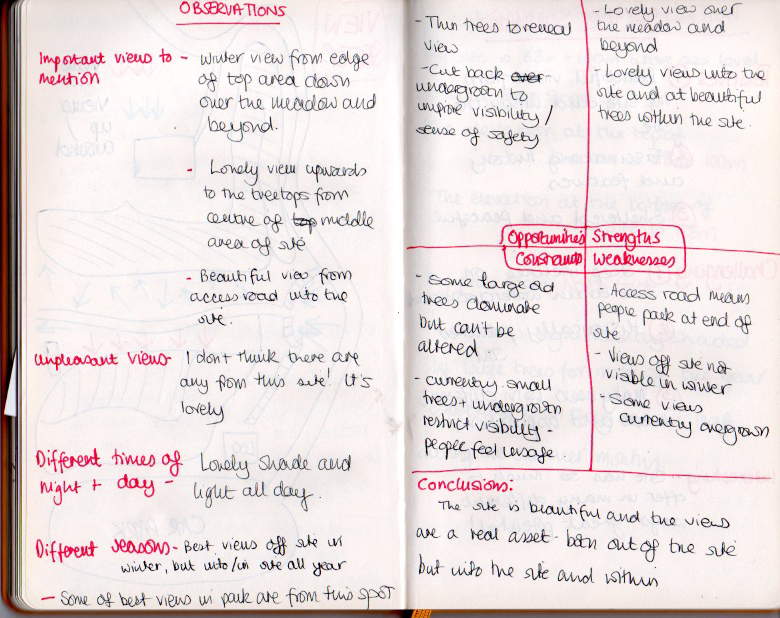 OBSERVATIONS
Important views to mention - winter view from edge
of top area down
over the meadow and
beyond.
- Lovely view upwards
to the treetops from
centre of top middle
area of site
- Beautiful view from
access road into the
site.
Unpleasant views - I don't think there are
any from this site! It's
lovely
Different times of
night + day - Lovely shade and
light all day.
Different seasons - Best views off site in
winter, but into/in site all year
- Some of best views in park are from this spot
- Thin trees to reveal
view
- Cut back over
undergroth to
improve visibility /
sense of safety
- Lovely view over
the meadow and
beyond
- Lovely views into the
site and at beautiful
trees within the site.
Opportunities Strengths
Constraints Weaknesses
- Some large old
trees dominate
but can't be
altered
- currently small
trees + undergroth
restrict visibility -
people feel unsafe
- Access road means
people park at end of
site
- Views off site not
visible in winter
- Some views
currently overgrown
Conclusions:
The site is beautiful and the views
are a real asset - both out of the site
but into the site and within